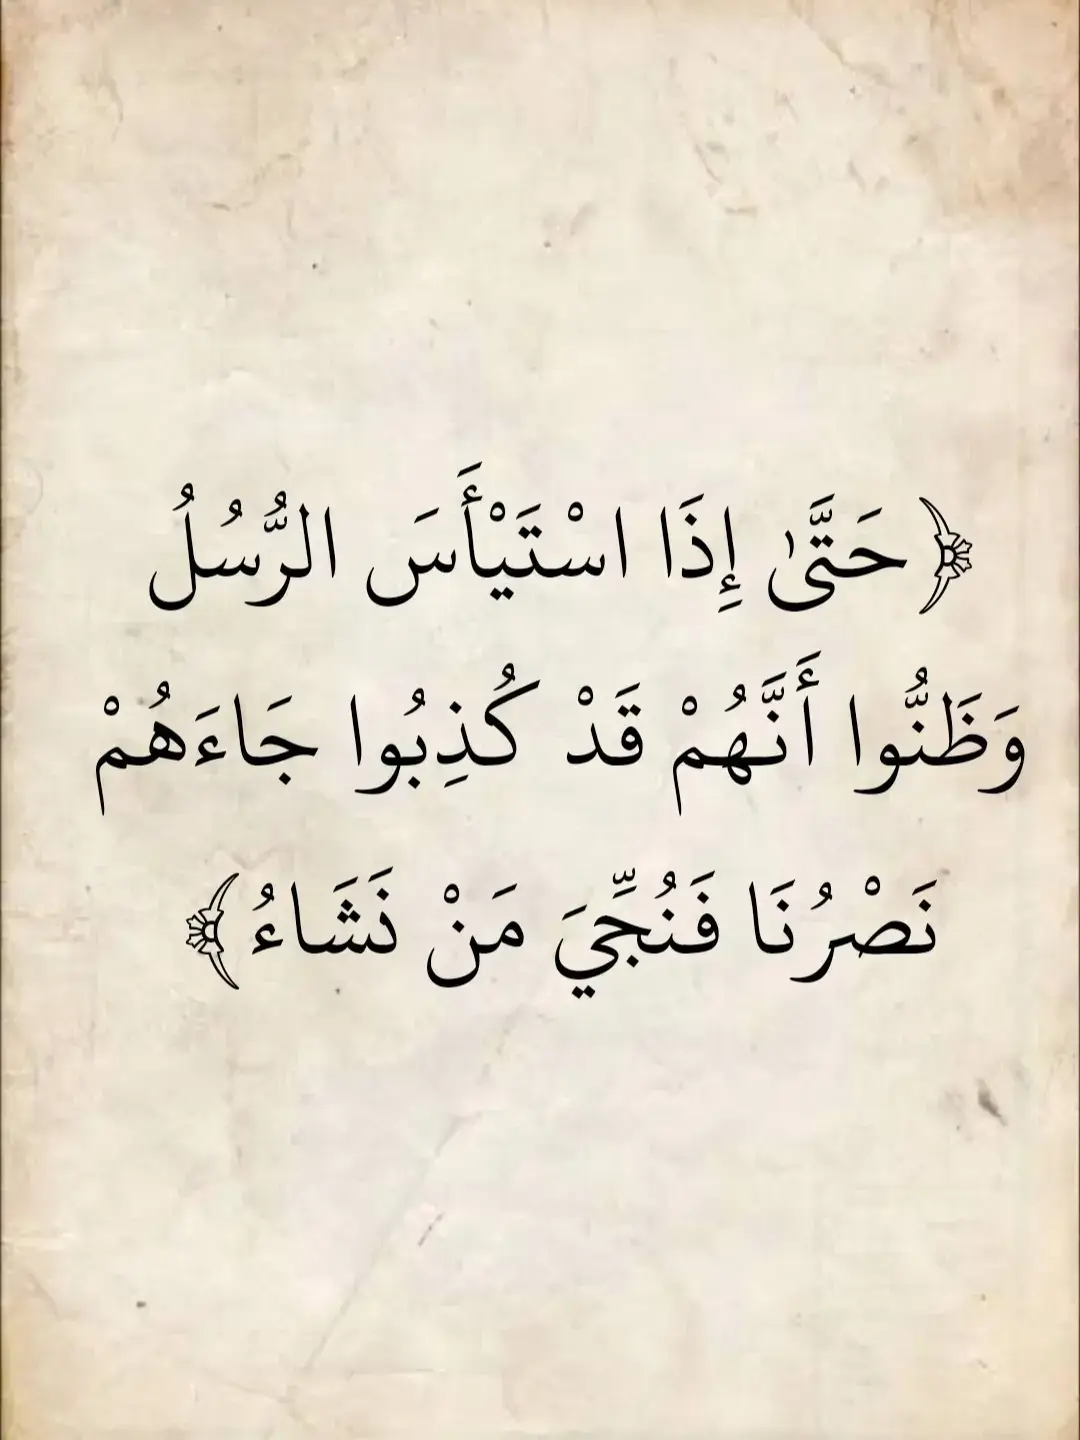 ﴿حَتَّىٰ إِذَا اسْتَيْأَسَ الرُّسُلُ
وَظَنُّوا أَنَّهُمْ قَدْ كُذِبُوا جَاءَهُمْ
نَصْرُنَا فَنُجِّيَ مَنْ نَشَاءُ﴾